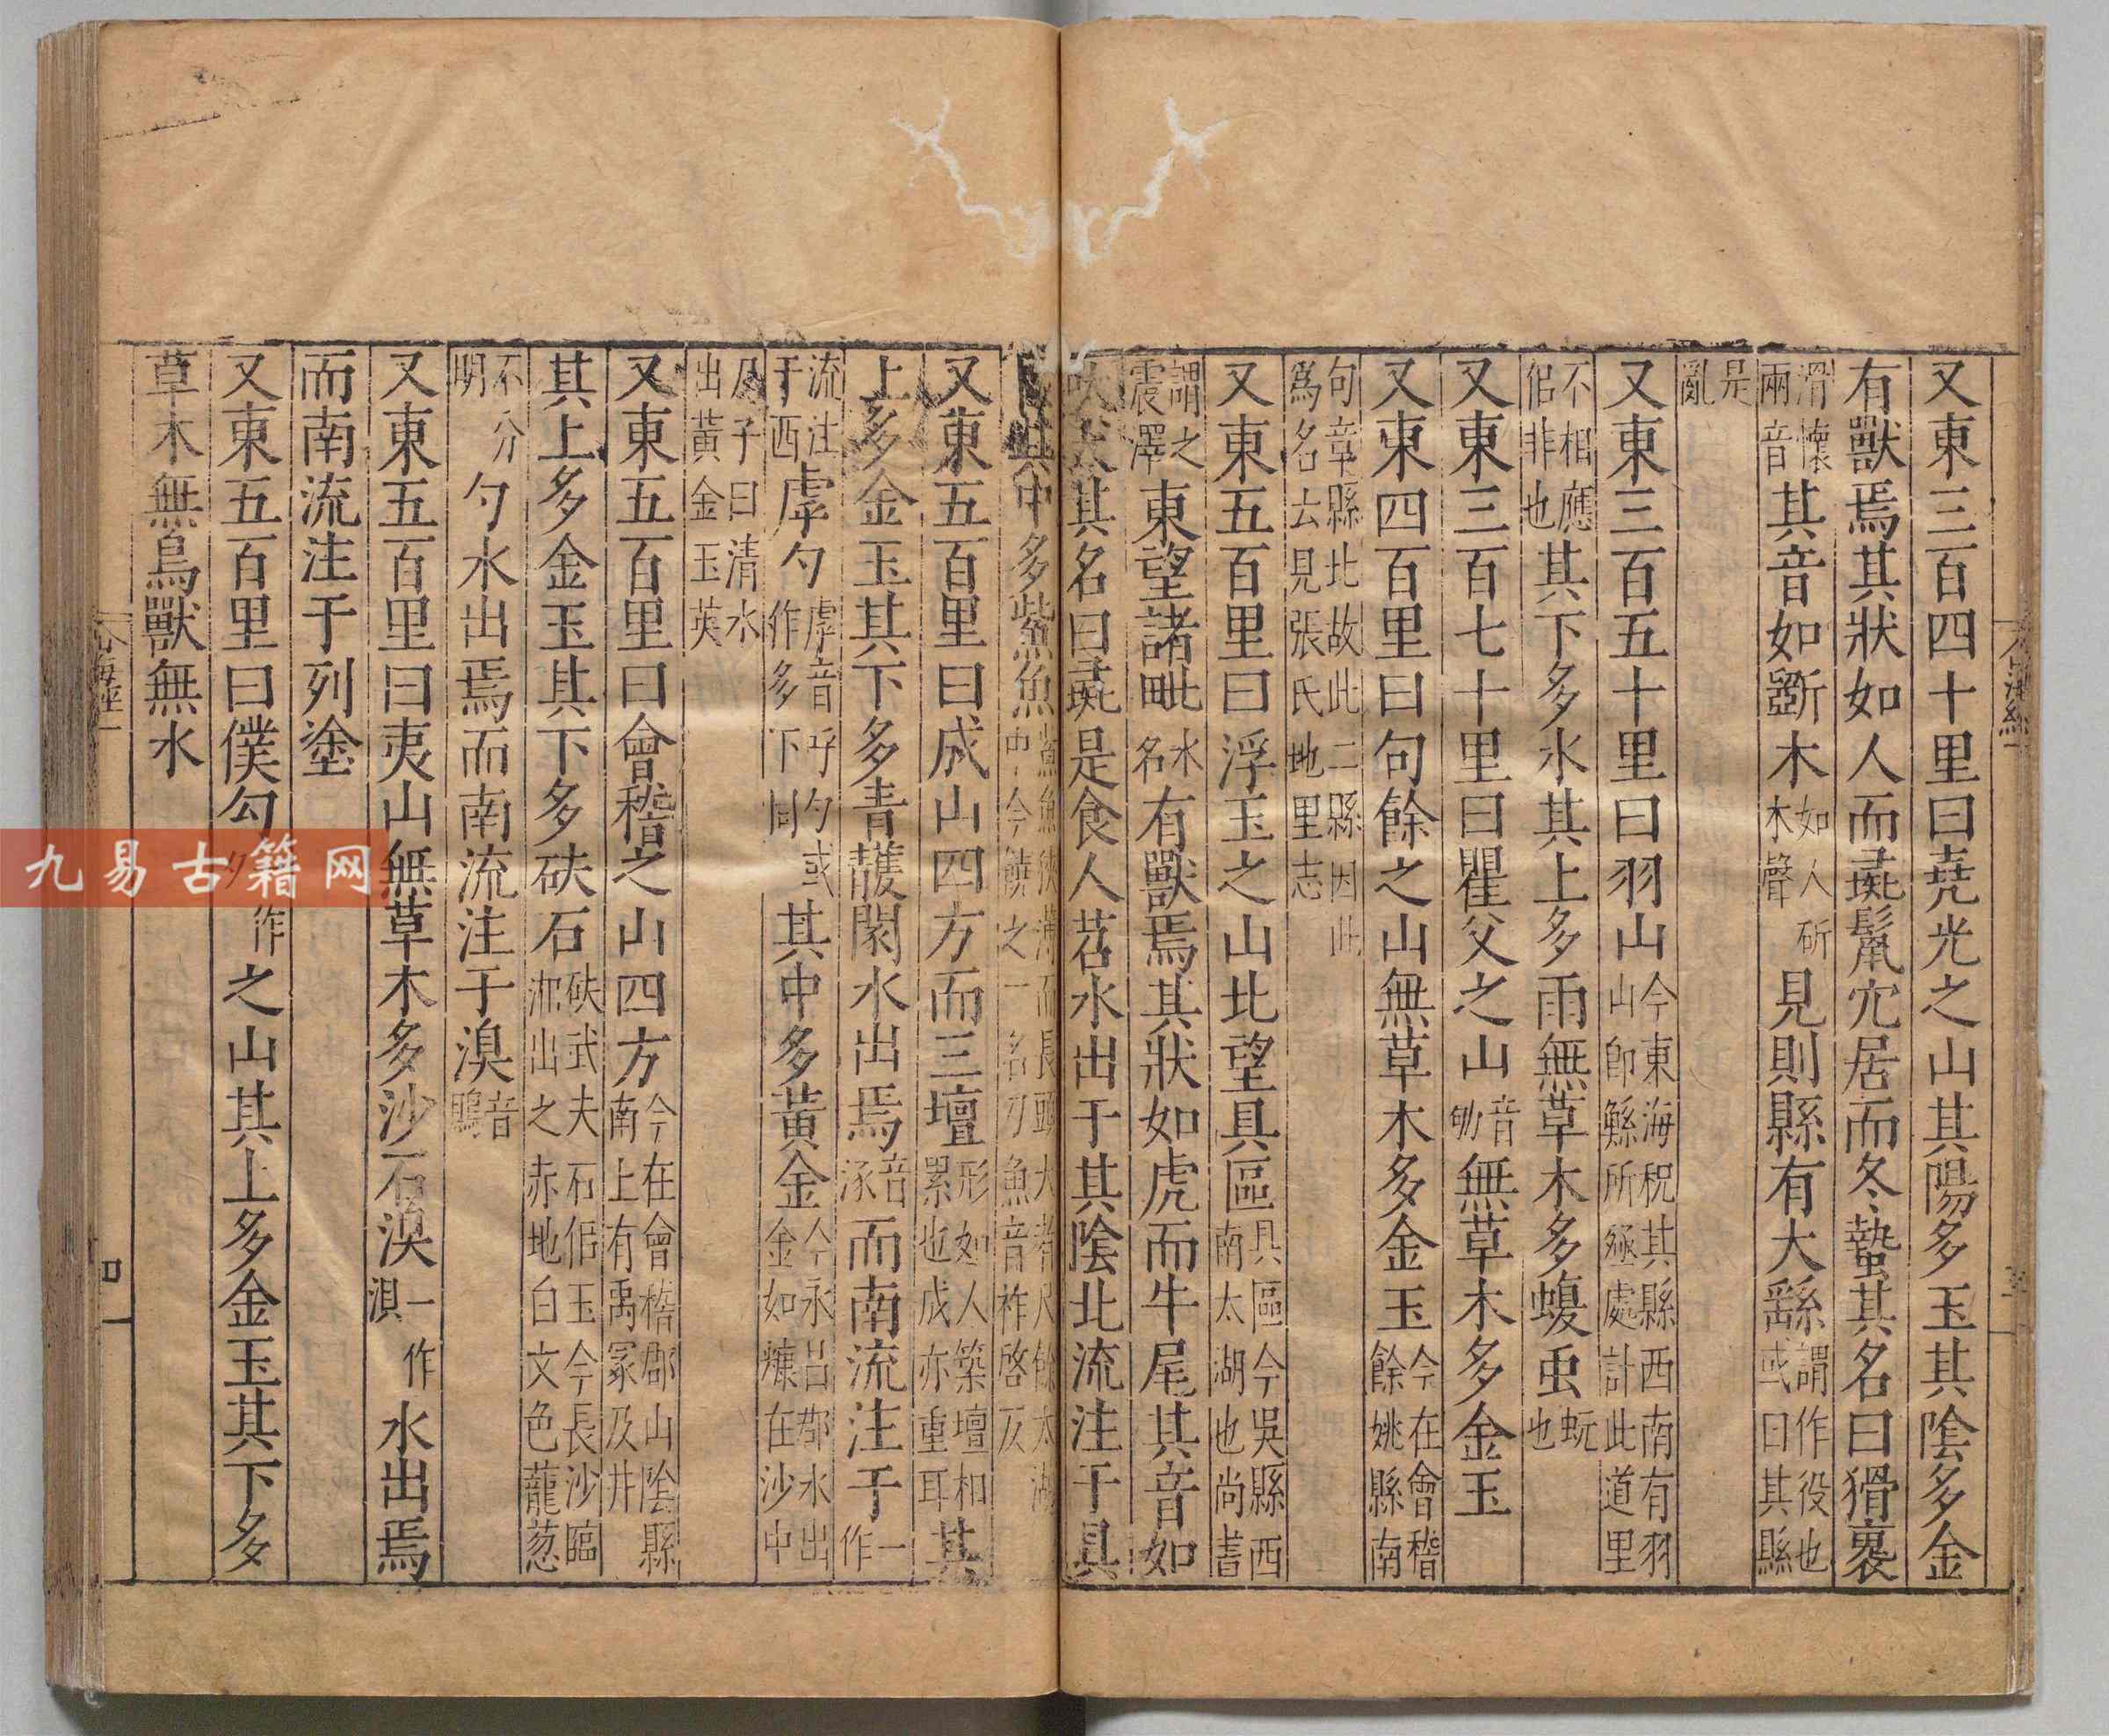 又東三百四十里曰堯光之山其陽多玉其陰多金
有獸焉其狀如人而彘鬣穴居而冬蟄其名曰猾褢
滑懷兩音其音如斲木如人斫木聲見則縣有大繇謂作役也或曰其縣
是亂
又東三百五十里曰羽山今東海祝其縣西南有羽山即鯀所殛處計此道里
不相應佀非也其下多水其上多雨無草木多蝮虫蚖也
又東三百七十里曰瞿父之山音劬無草木多金玉
又東四百里曰句餘之山無草木多金玉今在會稽餘姚縣南
句章縣北故此二縣因此爲名云見張氏地里志
又東五百里曰浮玉之山北望具區具區今吳縣西南太湖也尚書
謂之震澤東望諸毗水名有獸焉其狀如虎而牛尾其音如
吠犬其名曰彘是食人苕水出于其陰北流注于具
其中多鮆魚鮆魚狹薄而長頭大者尺餘太湖中今饒之一名刀魚音祚啓反
又東五百里曰成山四方而三壇形如人築壇相累也成亦重耳其
上多金玉其下多青雘閡水出焉音涿而南流注于一作
流注于西虖勺虖音呼勺或作多下同其中多黃金今永昌郡水出金如糠在沙中
尸子曰清水出黃金玉英
又東五百里曰會稽之山四方今在會稽郡山陰縣南上有禹冢及井
其上多金玉其下多砆石砆武夫石佀玉今長沙臨湘出之赤地白文色蘢葱
不分明勺水出焉而南流注于湨音鶪
又東五百里曰夷山無草木多沙石湨一作浿水出焉
而南流注于列塗
又東五百里曰僕勾作夕之山其上多金玉其下多
草木無鳥獸無水
山海經一
四一
九易古籍网